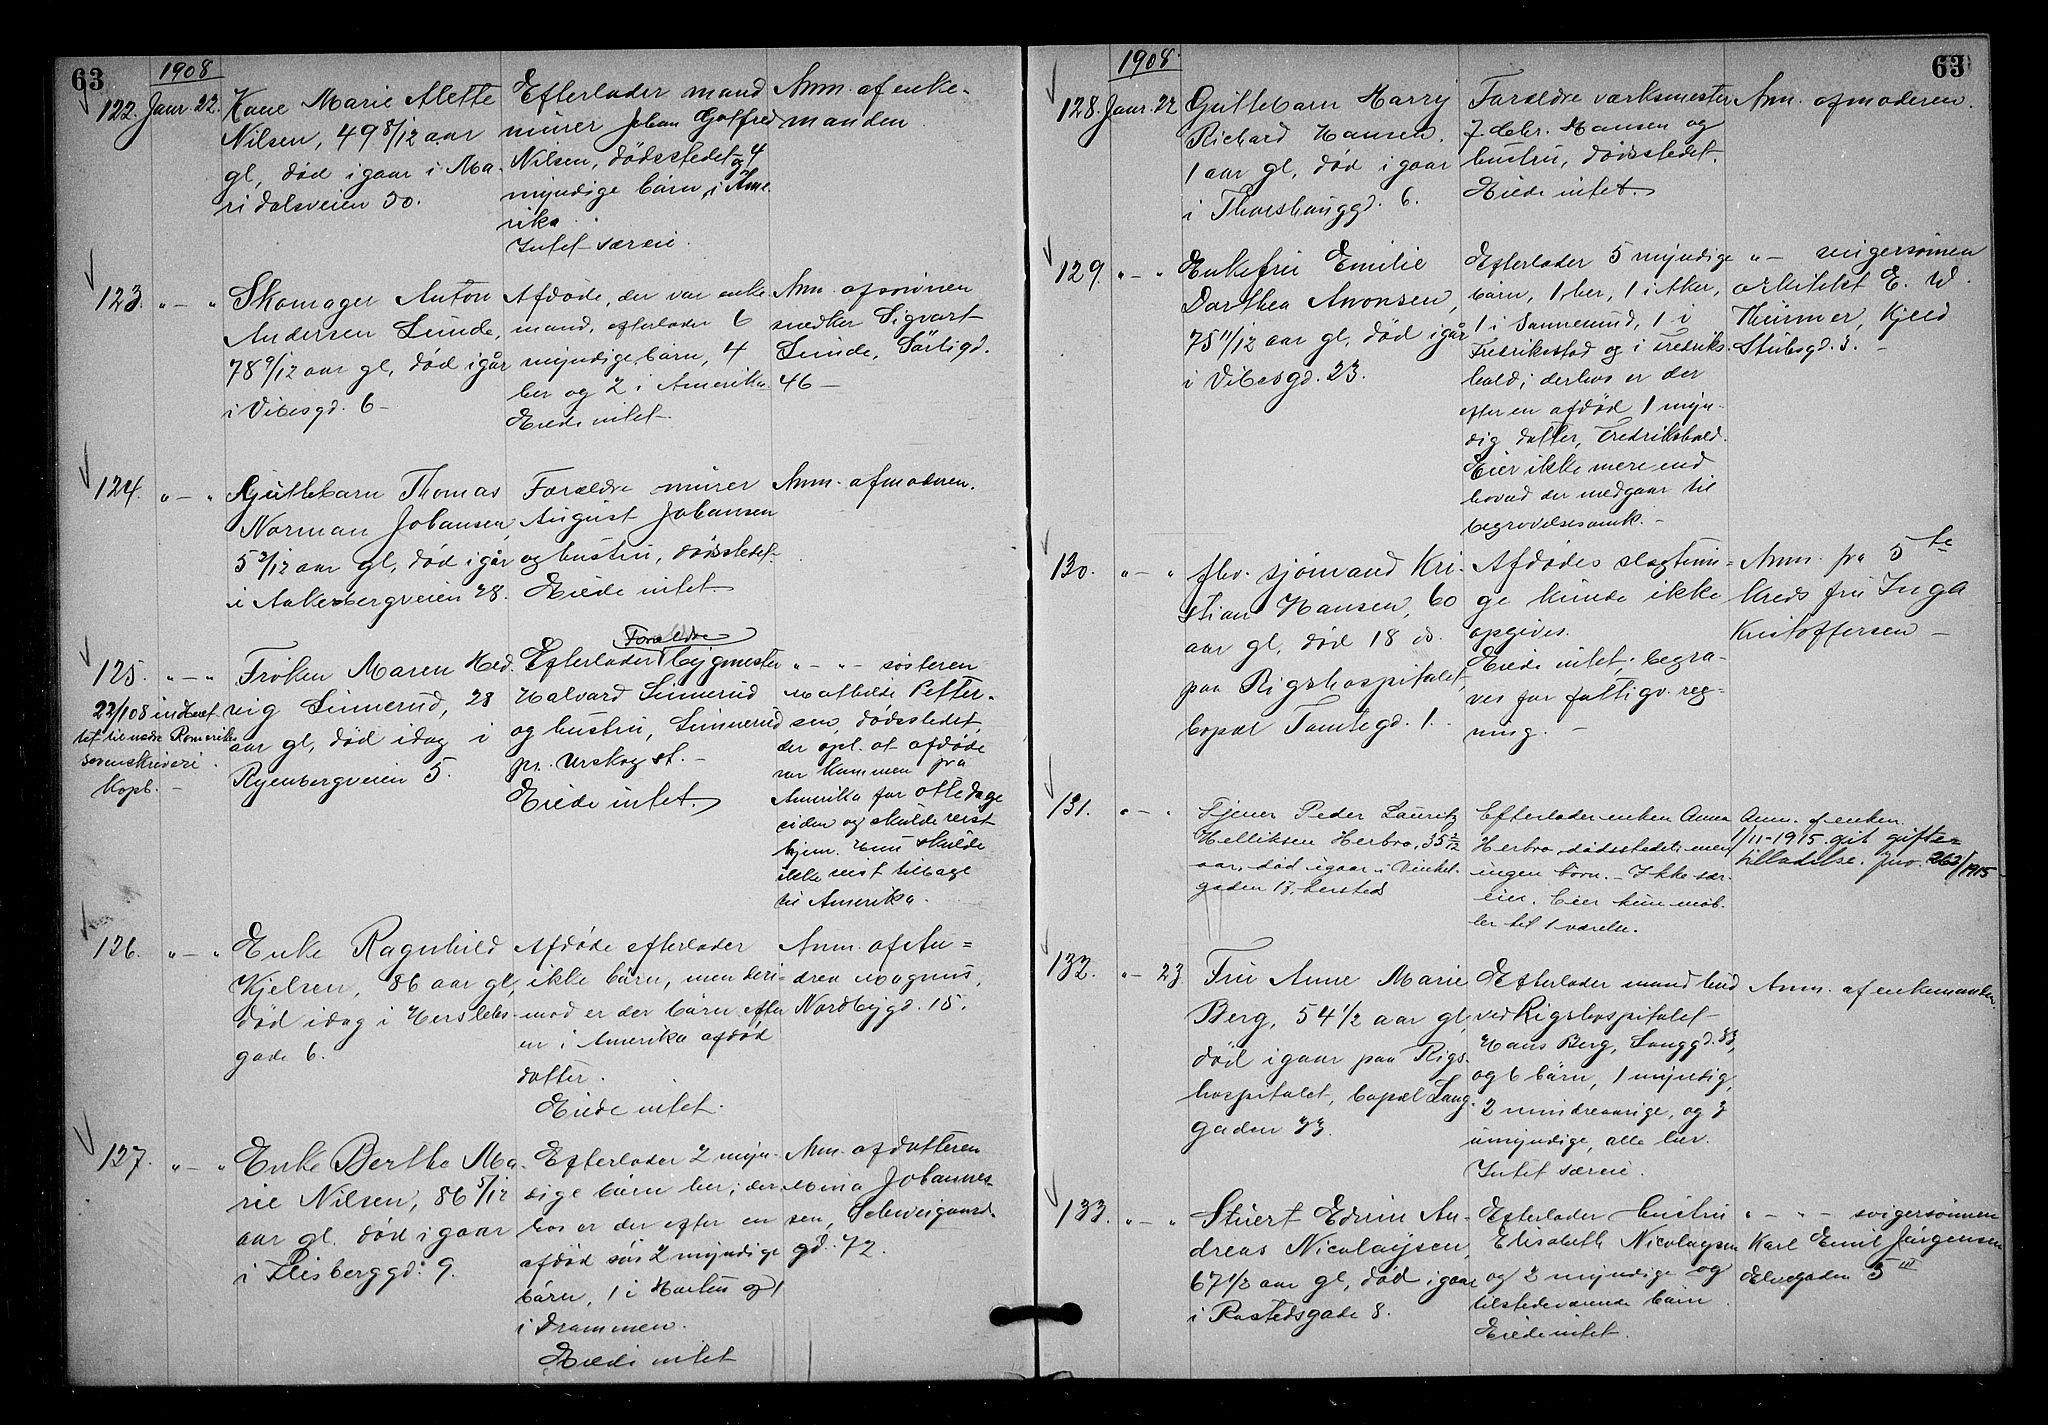 63
1908
122. Janr. 22. Kone Marie Alette
Nilsen, 49 8/12 aar
gl, død igaar i Ma-
ridalsveien 30.
Efterlader mand
murer Johan Gotfred
Nilsen, dødsstedet og 4
myndige børn i Ame-
rika
Intet særeie.
Anm. af enke-
manden
123. " — " Skomager Anton
Andersen Lunde,
78 9/12 aar gl, død igår
i Vibesgd. 6 —
Afdøde, der var enke-
mand, efterlader 6
myndige børn, 4
her og 2 i Amerika
Eiede intet.
Anm. af sønnen
snedker Sigvart
Lunde, Sørligd.
46 —
124. " — " Guttebarn Thomas
Norman Johansen,
5 3/12 aar gl, død igår
i Aakebergveien 28.
Forældre murer
August Johansen
og hustru, dødsstedet.
Eiede intet.
Anm. af moderen.
125. " — " Frøken Maren Hed-
vig Linnerud, 28
aar gl, død idag i
Ryenbergveien 5.
22/1 08 indberet-
tet til nedre Romerikes
sorenskriveri.
Kopb. —
Forældre
Efterlader bygmester
Halvard Linnerud
og hustru, Linnerud
pr. Urskog st. —
Eiede intet.
" — " — søsteren
Mathilde Petter-
sen, dødsstedet,
der opl. at afdøde
var kommen fra
Amerika for otte dage
siden og skulde reist
hjem. Hun skulde
ikke reist tilbage
til Amerika.
126. " — " Enke Ragnhild
Kjelsen, 86 aar gl,
død idag i Herslebs-
gade 6.
Afdøde efterlader
ikke børn, men deri-
mod er der børn efter
en i Amerika afdød
datter.
Eiede intet.
Anm. af An-
drea Magnus,
Nordbygd. 15.
127. " — " Enke Berthe Ma-
rie Nilsen, 86 5/12
aar gl. død igaar
i Heisberggd. 9.
Efterlader 2 myn-
dige børn her; der-
hos er der efter en
afdød søn 2 myndige
børn, 1 i Horten og 1
i Drammen.
Eiede intet
Anm. af datteren
Mina Johannes-
sen, Schweigaards-
gd. 72.
63
1908.
128. Janr. 22 Guttebarn Harry
Richard Hansen,
1 aar gl, død igaar
i Thorshauggd. 6.
Forældre værksmester
Hansen og
hustru, dødsstedet.
Eiede intet.
Anm. af moderen.
129. " — " Enkefru Emilie
Dorthea Aronsen,
75 11/12 aar gl, død igår
i Vibesgd. 23.
Efterlader 5 myndige
børn, 1 her, 1 i Aker,
1 i Sannesund, 1 i
Fredrikstad og i Fredriks-
hald; derhos er der
efter en afdød 1 myn-
dig datter, Fredrikshald.
Eier ikke mere end
hvad der medgaar til
begravelsesomk. —
" — svigersønnen
arkitekt E. W.
Thürmer, Kjeld
Stubsgd. 3. —
130. " — " fhv. sjømand Kri-
stian Hansen, 60
aar gl, død 18 ds.
paa Rigshospitalet,
bopæl Tomtegd. 1.
Afdødes slægtnin-
ge kunde ikke
opgives.
Eiede intet; begra-
ves for fattigv. reg-
ning. —
Anm. fra 5te
kreds fru Inga
Kristoffersen —
131. " — " Tjener Peder Lauritz
Helliksen Herbro, 35 2/12
aar, død igaar i Vinkel-
gaden 17, hersteds
Efterlader enken Anna
Herbro, dødsstedet, men
ingen børn. — Ikke sær-
eie. Eier kun møb-
ler til 1 værelse.
Anm. af enken.
1/11-1915 git gifte-
tilladelse. Jno. 263/1915
132. " — 23 Fru Anne Marie
Berg, 54 1/2 aar gl,
død igaar paa Rigs-
hospitalet, bopæl Lang-
gaden 33.
Efterlader mand bud
ved Rigshospitalet
Hans Berg, Langgd. 33,
og 6 børn, 1 myndig,
2 mindreaarige, og 3
umyndige, alle her.
Intet særeie.
Anm. af enkemanden.
133. " — " Stuert Edvin An-
dreas Nicolaysen,
67 1/2 aar gl, død igaar
i Rostedsgade 8.
Efterlader hustru
Elisabeth Nicolaysen
og 2 myndige og
tilstedeværende børn
Eiede intet.
" — " — svigersønnen
Karl Emil Jürgensen
Elvegaden 5 III